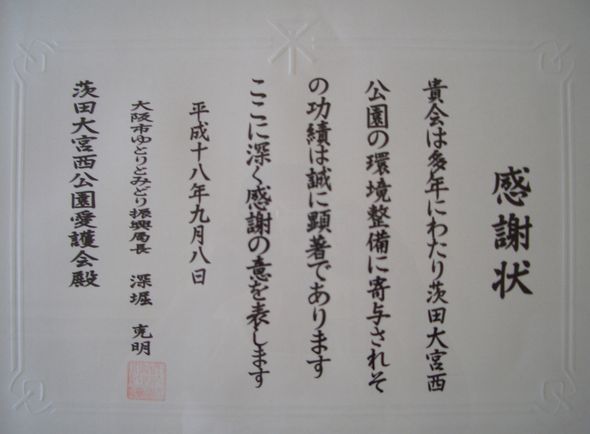 感謝状
貴会は多年にわたり茨田大宮西
公園の環境整備に寄与されそ
の功績は誠に顕著であります
ここに深く感謝の意を表します
平成十八年九月八日
大阪市ゆとりとみどり振興局長 深堀 克明
茨田大宮西公園愛護会殿